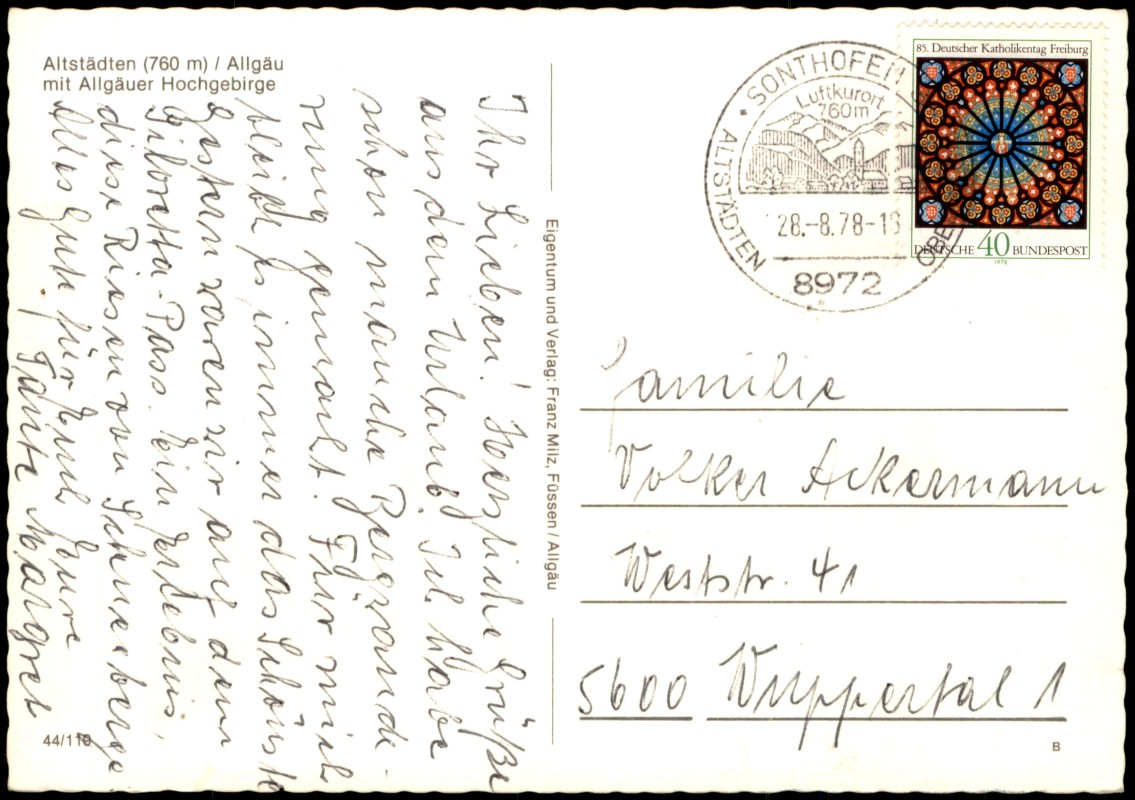 Altstädten (760 m) / Allgäu
mit Allgäuer Hochgebirge
Ihr Lieben! Herzliche Grüße
aus dem Urlaub. Ich habe
schon manche Bergwande-
rung gemacht. Für mich
bleibt es immer das Schönste
Gestern waren wir auf dem
Silvretta-Pass. Ein Erlebnis,
diese Riesen von Schneeberge.
Alles Gute für Euch Eure
Tante Margret
44/119
Eigentum und Verlag: Franz Milz, Füssen / Allgäu
SONTHOFEN
Luftkurort
760m
ALTSTÄDTEN
28.-8.78-18
8972
OBE
85. Deutscher Katholikentag Freiburg
DEUTSCHE 40 BUNDESPOST
1978
Familie
Volker Ackermann
Weststr. 41
5600 Wuppertal 1
B